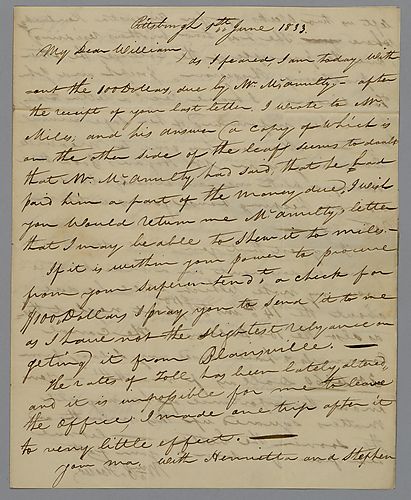 Pittsburgh 1st June 1833.
My Dear William,
as I feared, I am today with
out the 100 Dollars, due by Mr. McAnulty,- after
the receipt of your last letter, I wrote to Mr.
Miles, and his answer (a copy of which is
on the other side of the leaf seems to doubt
that Mr. McAnulty had said, that he had
paid him a part of the money due, I wish
you would return me McAnulty's letter
that I may be able to shew it to Miles.-
If it is within your power to procure
from your Superintendt. a check for
100 Dollars, I pray you to send it to me
as I have not the slightest relyance on
geting it from Blairsville. —
The rates of Toll has been lately altered,
and it is unpossible for me to leave
the Office, I made one trip after it
to very little effect. —
your ma, with Henrietta and Stephen